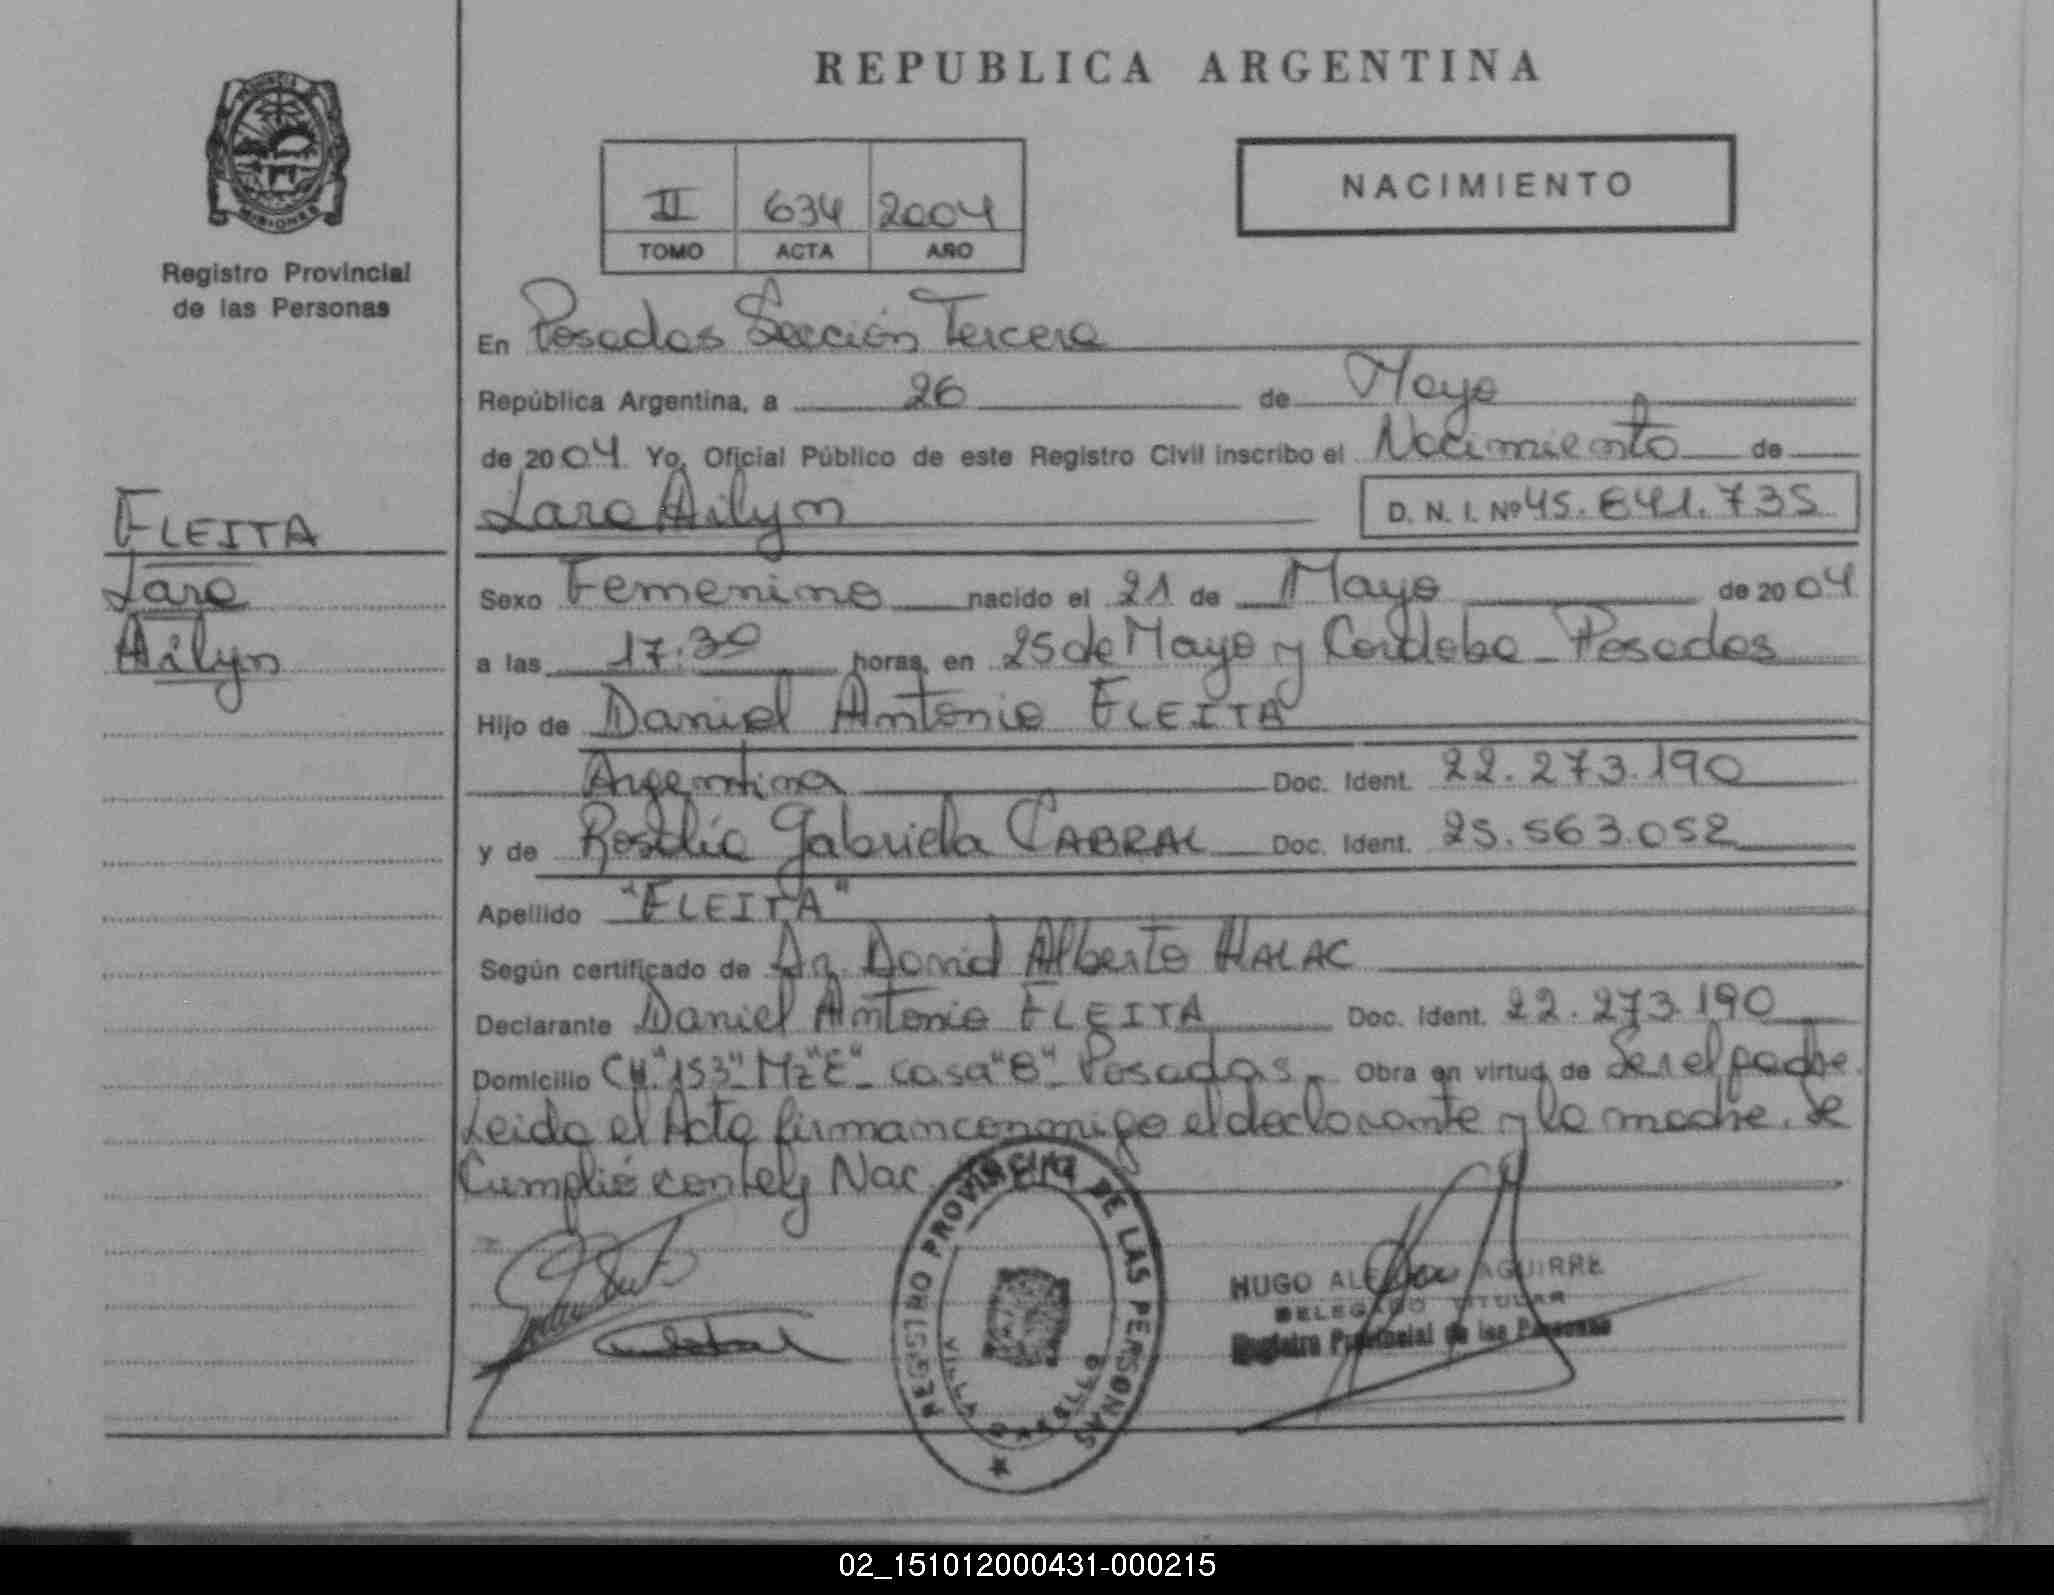 REPUBLICA ARGENTINA
PROVINCIA
MISIONES
Registro Provincial
de las Personas
II 634 2004
TOMO ACTA AÑO
NACIMIENTO
En Posadas Sección Tercera
República Argentina, a 26 de Mayo
de 2004 Yo, Oficial Público de este Registro Civil inscribo el Nacimiento de
Lara Ailyn D. N. I. Nº 45.841.735
FLEITA
Lara
Ailyn
Sexo Femenino nacido el 21 de Mayo de 2004
a las 17.30 horas, en 25 de Mayo y Cordoba - Posadas
Hijo de Daniel Antonio FLEITA
Argentina Doc. Ident. 22.273.190
y de Rosalía Gabriela CABRAL Doc. Ident. 25.563.052
Apellido "FLEITA"
Según certificado de Dr. David Alberto HALAC
Declarante Daniel Antonio FLEITA Doc. Ident. 22.273.190
Domicilio CH "153" Mz "E" - casa "8" - Posadas - Obra en virtud de Ser el padre.
Leida el Acta firman conmigo el declarante y la madre. Se
Cumplió con Ley Nac.
REGISTRO PROVINCIAL DE LAS PERSONAS
VILLA CABELLO
HUGO AGUIRRE
DELEGADO TITULAR
Registro Provincial de las Personas
02_151012000431-000215